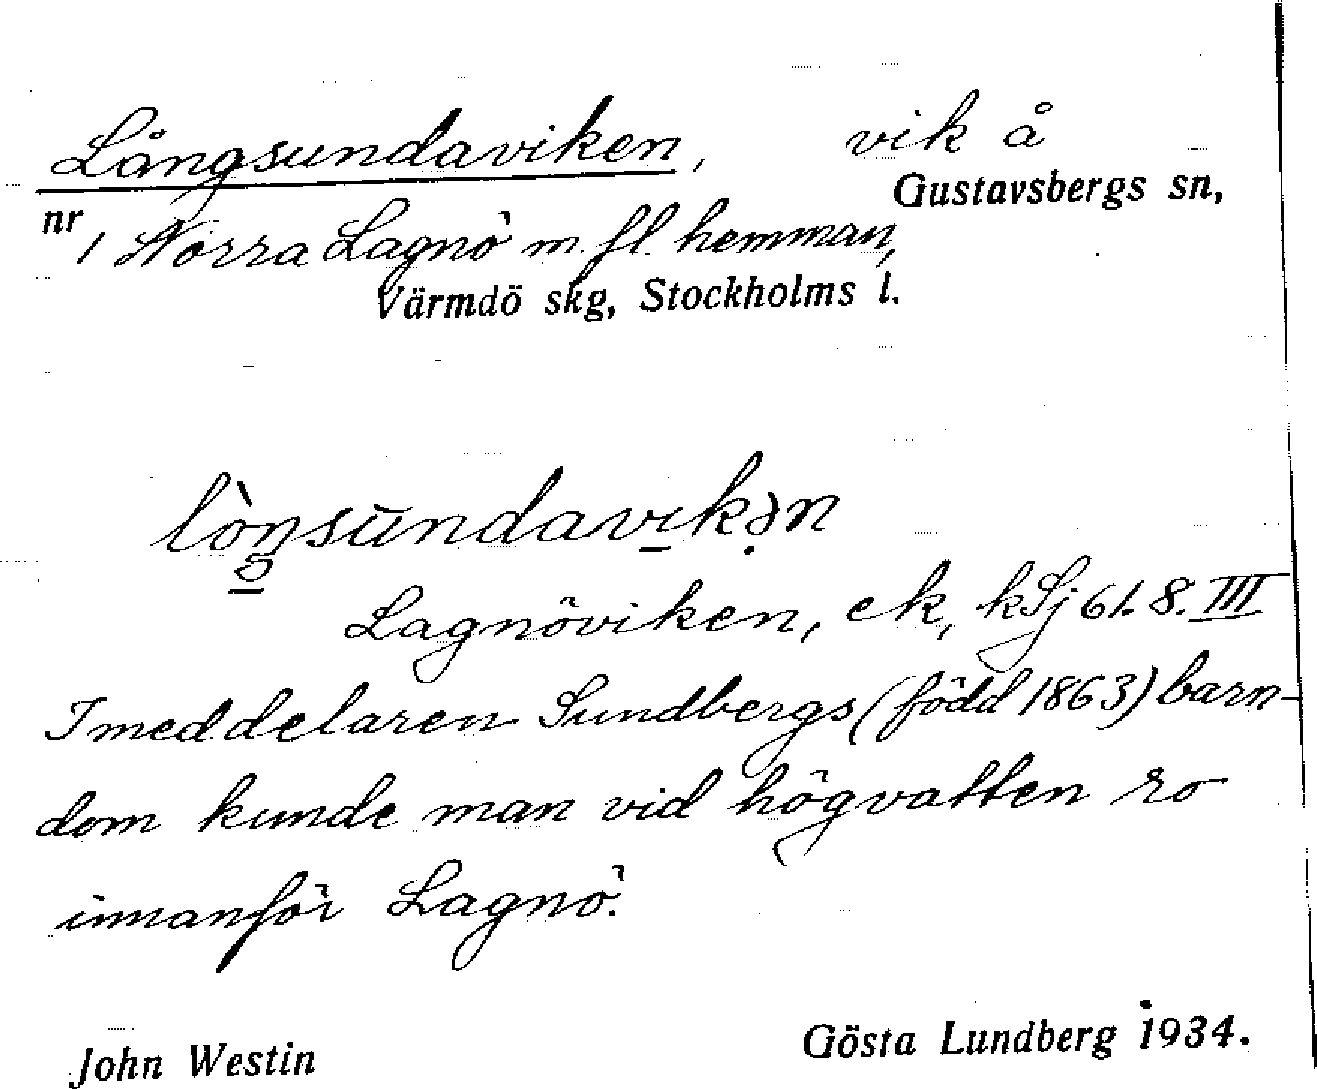 Långsundaviken, vik å
Gustavsbergs sn,
nr 1 Norra Lagnö m. fl. hemman,
Värmdö skg, Stockholms l.
lòŋsūndavı̱kə̣n
Lagnöviken, ek, kSj 61. 8. III
I meddelaren Sundbergs (född 1863) barn-
dom kunde man vid högvatten ro
innanför Lagnö.
John Westin Gösta Lundberg 1934.